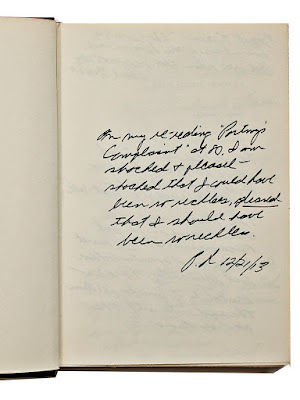 On my re-reading "Portnoy's
Complaint" at 80, I am
shocked & pleased—
shocked that I could have
been so reckless, pleased
that I should have
been so reckless.
P.R. 12/21/13